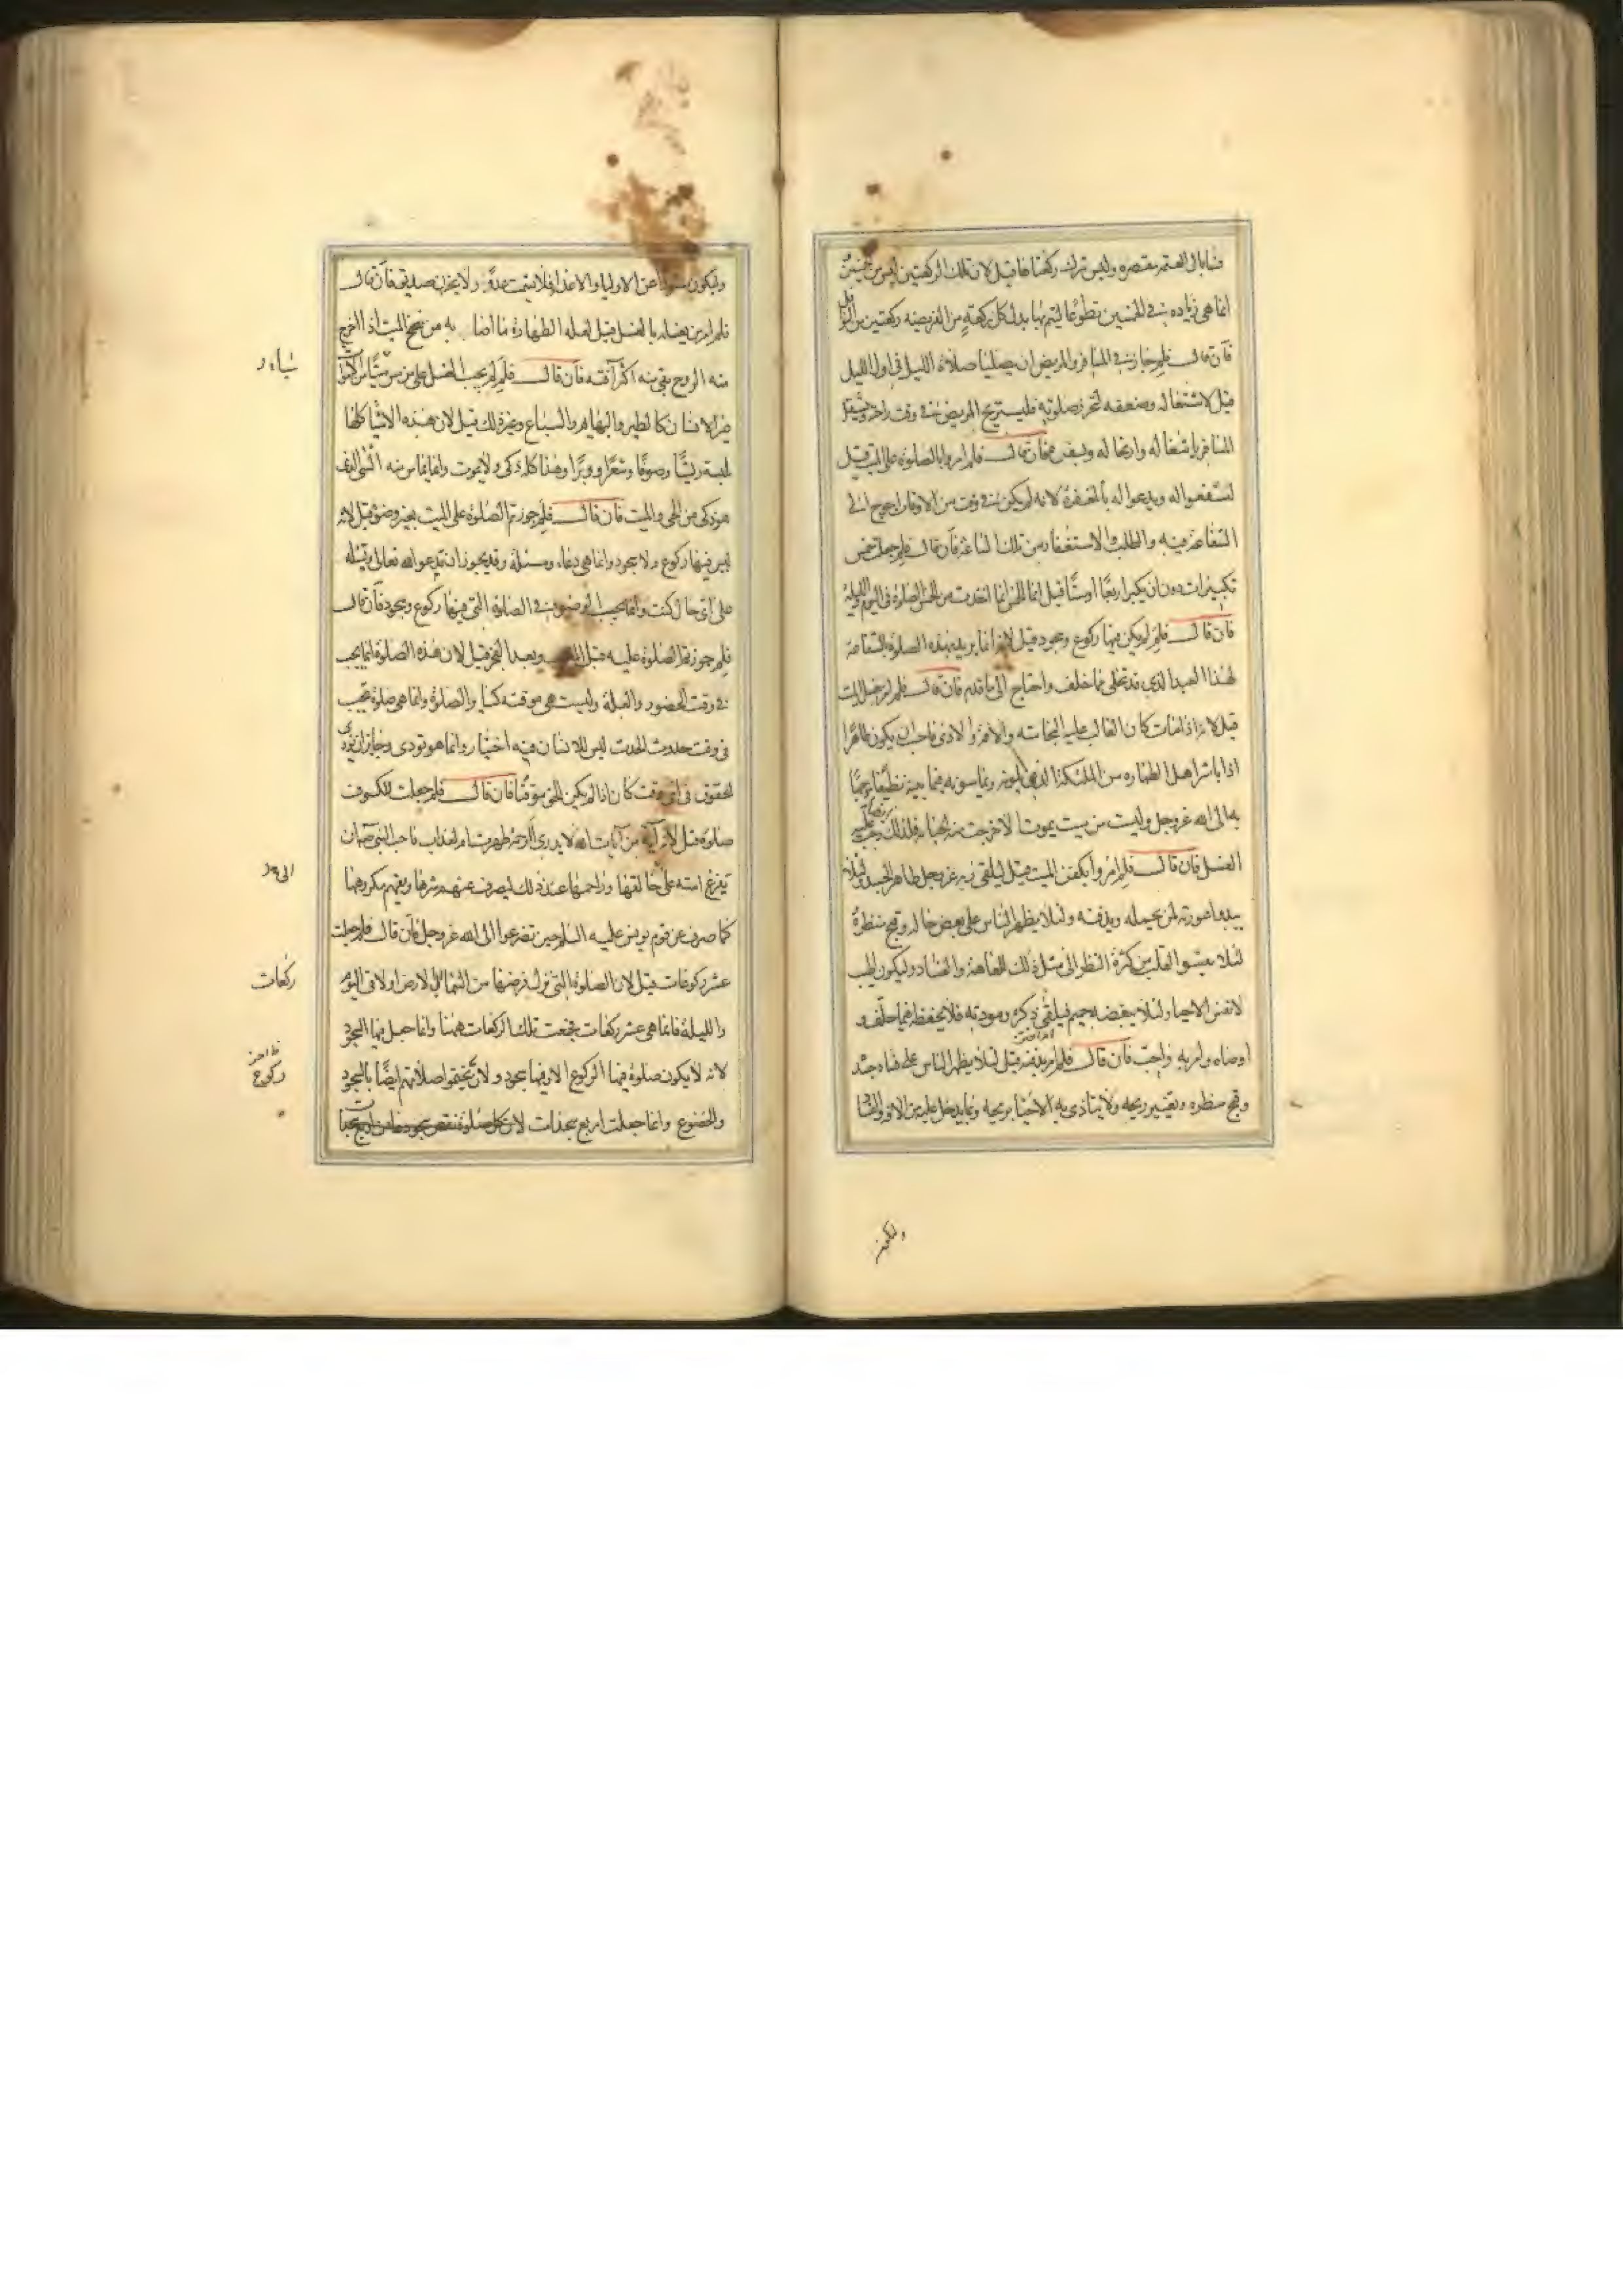 فما بال العتمة مقصوره وليس ترك ركعتاها قيل لان تلك الركعتين ليس من الخمسين
انما هى زياده فى الخمسين تطوعا ليتم بها بدل كل ركعة من الفريضه ركعتين من النوافل
فان قال فلم جاز فى المسافر والمريض ان يصليا صلاة الليل فى اول الليل
قيل لاشتغاله وضعفه لتحرز صلوته فليستريح المريض فى وقت راحته ويشتغل
المسافر باشغاله وارتحاله وسفره فان قال فلم امروا بالصلوة على الميت قيل
ليشفعوا له ويدعوا له بالمغفرة لانه لم يكن فى وقت من الاوقات احوج الى
الشفاعة فيه والطلب والاستغفار من تلك الساعة فان قال فلم جعلت خمس
تكبيرات دون ان يكبر اربعا او ستا قيل انما الخمس انما اخذت من الخمس الصلوة فى اليوم والليلة
فان قال فلم لم يكن فيها ركوع وسجود قيل لانه انما يريد بهذه الصلوة الشفاعة
لهذا العبد الذى قد تخلى مما خلف واحتاج الى ما قدم فان قال فلم امر بغسل الميت
قيل لانه اذا مات كان الغالب عليه النجاسة والافة والاذى فاحب ان يكون طاهرا
اذا باشر اهل الطهاره من الملئكة الذين يلونه ويماسونه فيما بينهم نظيفا موجها
به الى الله عز وجل وليس من ميت يموت الا خرجت منه الجنابة فلذلك وجب
الغسل فان قال فلم امروا بكفن الميت قيل ليلقى ربه عز وجل طاهر الجسد ولئلا
يبدو عورته لمن يحمله ويدفنه ولئلا يظهر الناس على بعض حاله وقبح منظره
لئلا يقسو القلب من كثرة النظر الى مثل ذلك للعاهة والفساد وليكون اطيب
لانفس الاحياء ولئلا يبغضه حميم فيلقى ذكره ومودته فلا يحفظه فيما خلف و
اوصاه وامر به واجب فان قال فلم امر بدفنه قيل لئلا يظهر الناس على فساد جسده
وقبح منظره وتغيير ريحه ولا يتاذى به الاحياء بريحه وبما يدخل عليه من الافة والفساد
وليكون
وليكون مستورا عن الاولياء والاعداء فلا يشمت عدو ولا يحزن صديق فان قال
فلم امر من يغسله بالغسل قيل لعلة الطهارة مما اصابه من نضح الميت اذا خرج
منه الروح بقى منه اكثر آفته فان قال فلم لم يجب الغسل على من مس شيئا من الاموات
غير الانسان كالطير والبهايم والسباع وغير ذلك قيل لان هذه الاشيا كلها
ملبسة ريشا وصوفا وشعرا ووبرا وهذا كله ذكى ولا يموت وانما يماس منه الشى الذى
هو ذكى من الحى والميت فان قال فلم جوزتم الصلوة على الميت بغير وضوء قيل لانه
ليس فيها ركوع ولا سجود وانما هى دعاء ومسئلة وقد يجوز ان تدعو الله تعالى وتسئله
على اى حال كنت وانما يجب الوضوء فى الصلوة التى فيها ركوع وسجود فان قال
فلم جوزتم الصلوة عليه قبل المغرب وبعد الفجر قيل لان هذه الصلوة انما يجب
فى وقت الحضور والعلة وليست هى موقتة كساير الصلوة وانما هى صلوة تجب
فى وقت حدوث الحدث ليس للانسان فيه اختيار وانما هو تودى وجايز ان تودى
الحقوق فى اى وقت كان اذا لم يكن الحق موقتا فان قال فلم جعلت للكسوف
صلوة قيل لانه آية من آيات الله لا يدرى الرحمة ظهرت ام لعذاب فاحب النبى ان
تفزع امته على خالقها وراحمها عند ذلك ليصرف عنهم شرها ويقيهم مكروهها
كما صرف عن قوم يونس عليه السلم حين تضرعوا الى الله عز وجل فان قال فلم جعلت
عشر ركوعات قيل لان الصلوة التى نزل فرضها من السماء الى الارض اولا فى اليوم
والليلة فانما هى عشر ركعات فجمعت تلك الركعات ههنا وانما جعل فيها السجود
لانه لا يكون صلوة فيها الركوع الا وفيها سجود ولان يختموا صلاتهم ايضا بالسجود
والخضوع وانما جعلت اربع سجدات لان كل صلوة نقص سجودها من اربع سجدات
الى
ركعات
ركوع